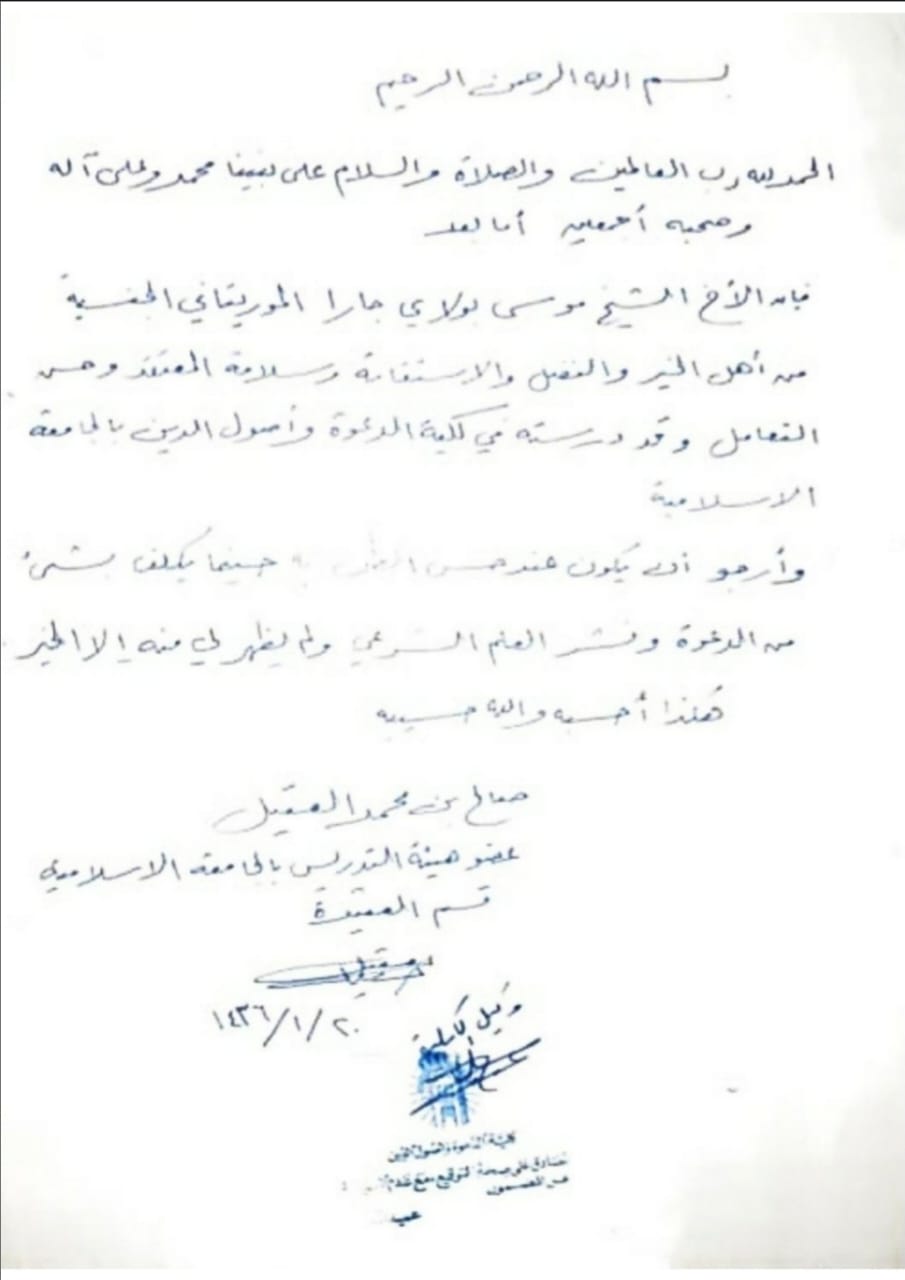 بسم الله الرحمن الرحيم
الحمد لله رب العالمين والصلاة والسلام على نبينا محمد وعلى آله
وصحبه أجمعين أما بعد
فإن الأخ الشيخ موسى بولاي جارا الموريتاني الجنسية
من أهل الخير والفضل والاستقامة وسلامة المعتقد وحسن
التعامل وقد درسته في كلية الدعوة وأصول الدين بالجامعة
الاسلامية
وأرجو أن يكون عند حسن الظن به حينما يكلف بشئ
من الدعوة ونشر العلم الشرعي ولم يظهر لي منه إلا الخير
هكذا أحسبه والله حسيبه
صالح بن محمد العقيل
عضو هيئة التدريس بالجامعة الاسلامية
قسم العقيدة
١٤٣٦/١/٢٠
وكيل الكلية
كلية الدعوة وأصول الدين
تصادق على صحة التوقيع مع عدم
عن المضمون